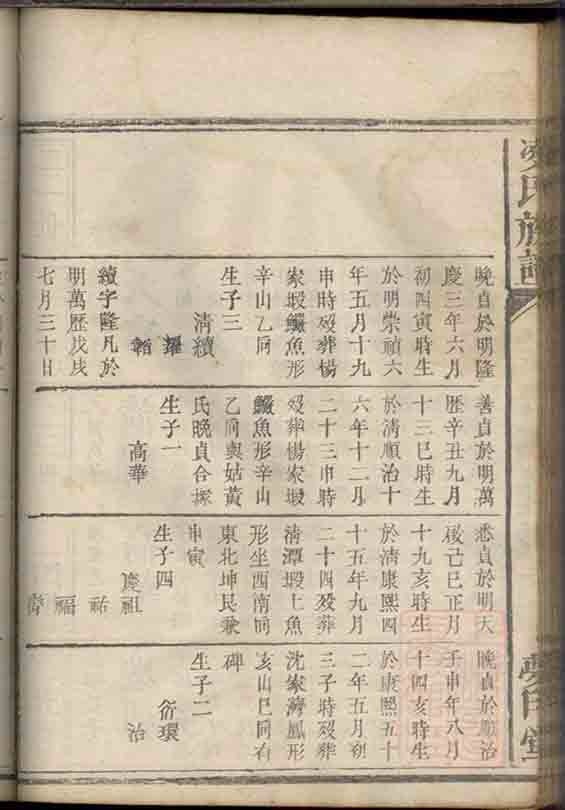 氏族譜
晚貞於明隆
慶三年六月
初四寅時生
於明崇禎六
年五月十九
申時歿葬楊
家塅鱖魚形
辛山乙向
生子三
清續
耀
韜
續字隆凡於
明萬歷戊戌
七月三十日
善貞於明萬
歷辛丑九月
十三巳時生
於清順治十
六年十二月
二十三申時
歿葬楊家塅
鱖魚形辛山
乙向與姑黃
氏晚貞合塚
生子一
高華
悉貞於明天
後己巳正月
十九亥時生
於清康熙四
十五年九月
二十四歿葬
清潭塅上魚
形坐西南向
東北坤艮兼
申寅
生子四
慶祖
祐
福
晚貞於順治
壬申年八月
十四亥時生
於康熙五十
二年五月初
三子時歿葬
沈家灣鳳形
亥山巳向有
碑
生子二
衍環
治